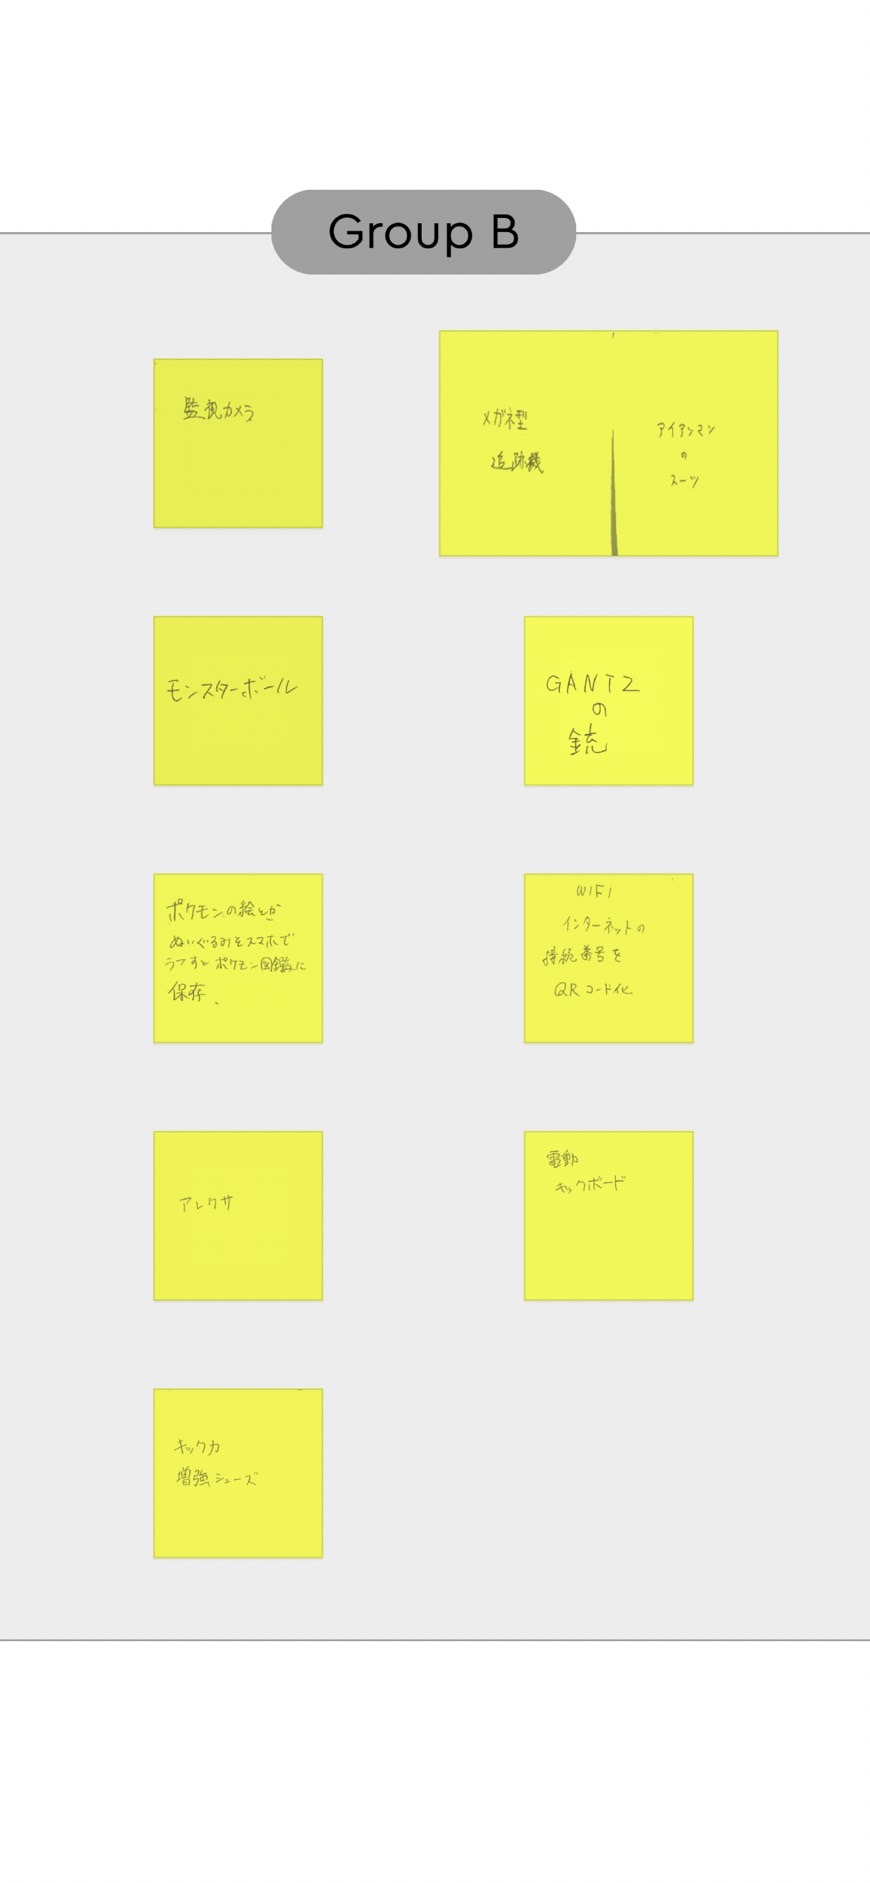 Group B
監視カメラ
メガネ型
追跡機
アイアンマン
の
スーツ
モンスターボール
GANTZ
の
銃
ポケモンの絵とか
ぬいぐるみをスマホで
うつすとポケモン図鑑に
保存.
WIFI
インターネットの
接続番号を
QRコード化
アレクサ
電動
キックボード
キック力
増強シューズ